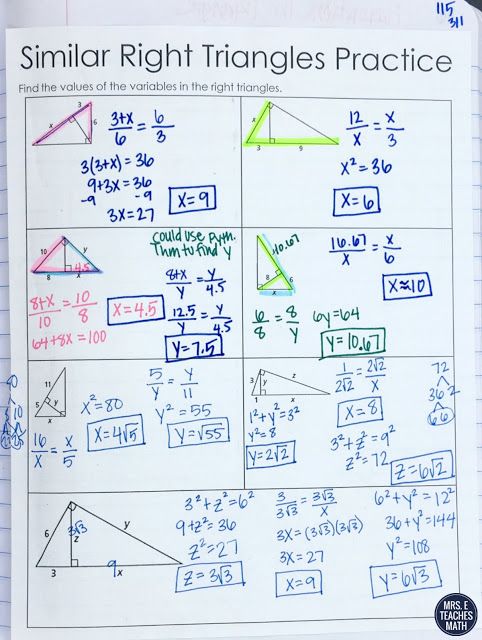 115
311
Similar Right Triangles Practice
Find the values of the variables in the right triangles.
3
x
6
3+x/6 = 6/3
3(3+x) = 36
9+3x = 36
-9 -9
3x = 27
x = 9
x
3
9
12/x = x/3
x² = 36
x = 6
10
y
8
x
4.5
could use Pyth.
Thm to find y
8+x/10 = 10/8
64+8x = 100
x = 4.5
8+x/y = y/4.5
12.5/y = y/4.5
y = 7.5
10.67
8
6
x
16.67/x = x/6
x ≈ 10
6/8 = 8/y
6y = 64
y = 10.67
11
5
y
x
80
16/x = x/5
x² = 80
x = 4√5
5/y = y/11
y² = 55
y = √55
3
y
z
1
x
1² + y² = 3²
y² = 8
y = 2√2
1/2√2 = 2√2/x
x = 8
3² + z² = 9²
z² = 72
z = 6√2
72
36 2
6 6
6
3√3
z
y
3
9
x
3² + z² = 6²
9 + z² = 36
z² = 27
z = 3√3
3/3√3 = 3√3/x
3x = (3√3)(3√3)
3x = 27
x = 9
6² + y² = 12²
36 + y² = 144
y² = 108
y = 6√3
MRS. E
TEACHES
MATH